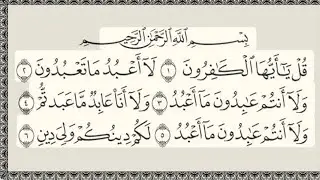 بِسْمِ ٱللَّهِ ٱلرَّحْمَٰنِ ٱلرَّحِيمِ
قُلْ يَٰٓأَيُّهَا ٱلْكَٰفِرُونَ ١ لَآ أَعْبُدُ مَا تَعْبُدُونَ ٢
وَلَآ أَنتُمْ عَٰبِدُونَ مَآ أَعْبُدُ ٣ وَلَآ أَنَا۠ عَابِدٌ مَّا عَبَدتُّمْ ٤
وَلَآ أَنتُمْ عَٰبِدُونَ مَآ أَعْبُدُ ٥ لَكُمْ دِينُكُمْ وَلِىَ دِينِ ٦